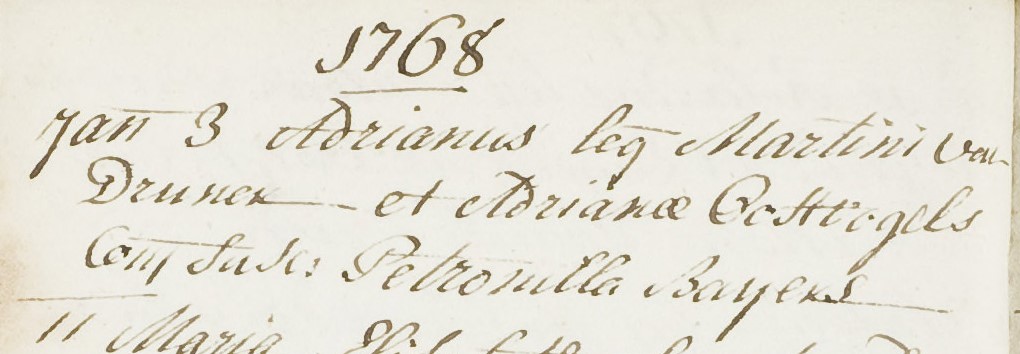 1768
Jan 3 Adrianus leg Martini van
Drunen et Adrianæ Costvogels
Conj Susc: Petronilla Bayens
11 Maria